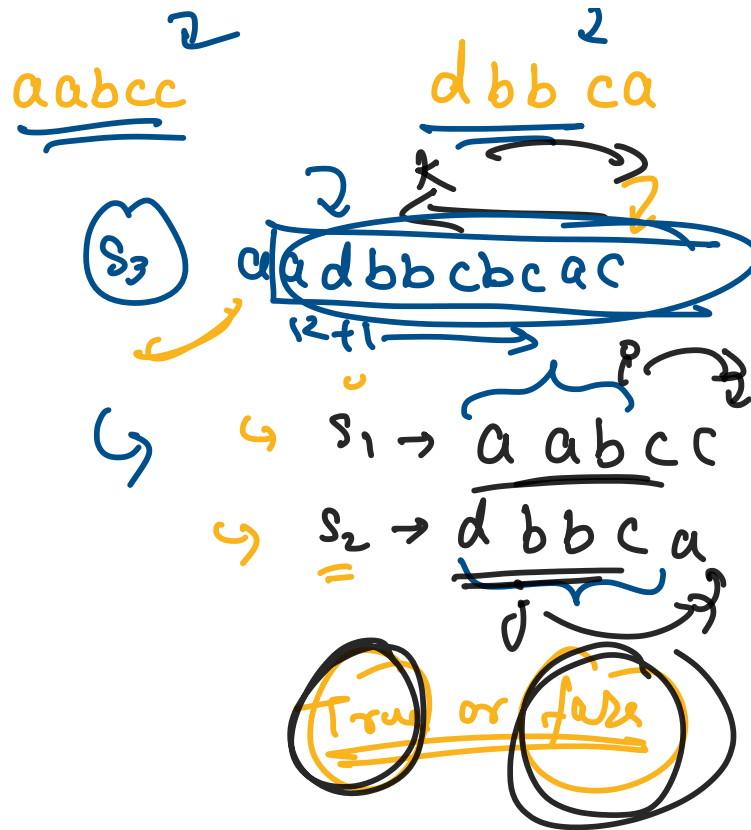 aabcc dbbca
K
S3 aadbbcbcac
i2+1
i
S1 → aabcc
S2 → dbbca
j
True or false